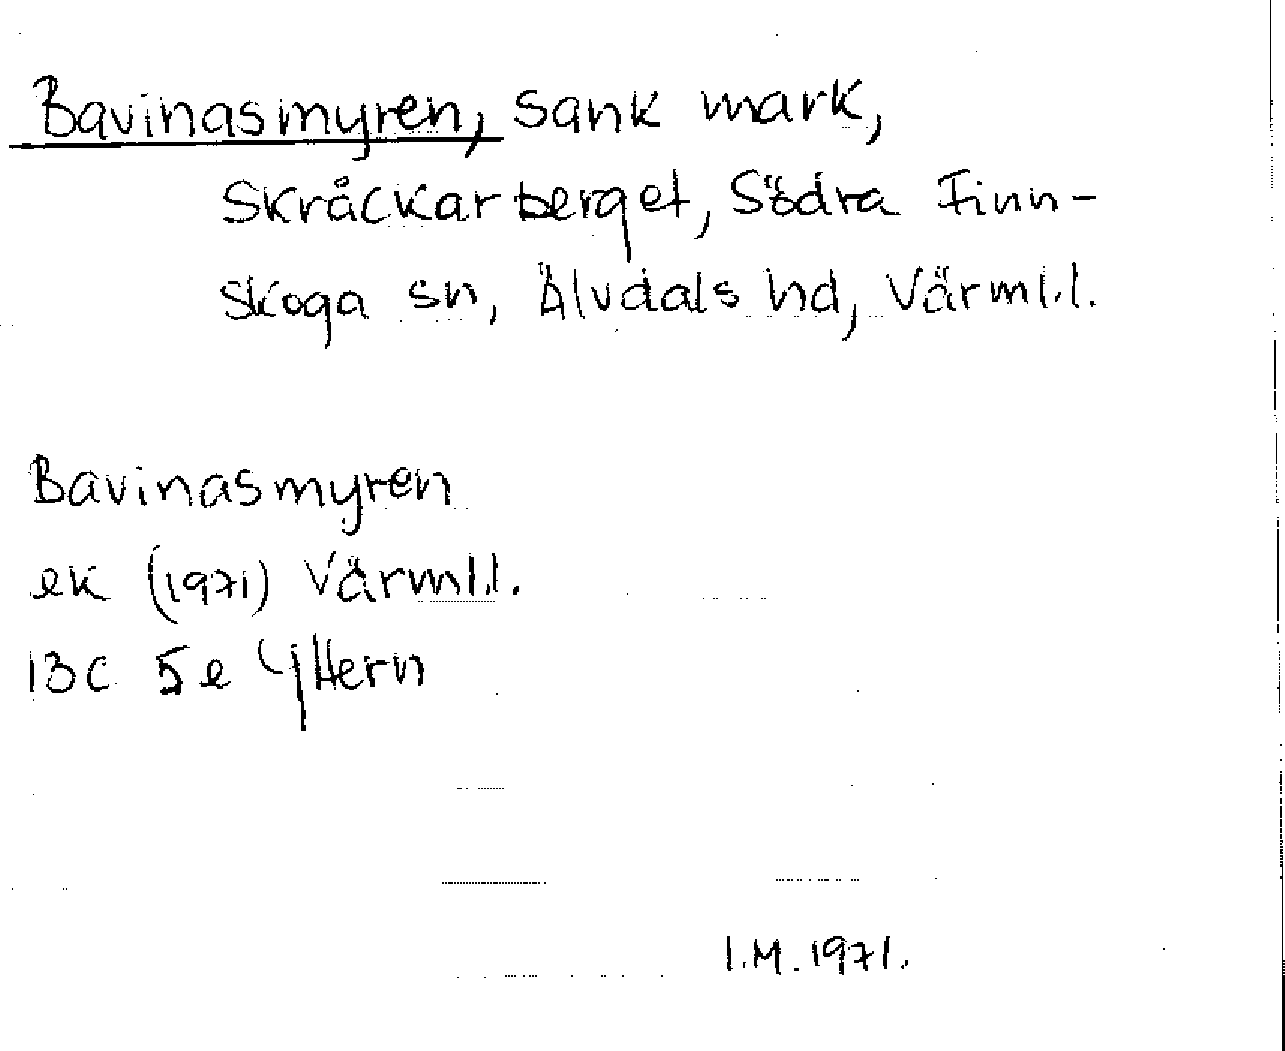 Bavinasmyren, sank mark,
Skråckarberget, Södra Finn-
skoga sn, Älvdals hd, Värml.l.
Bavinasmyren
ek (1971) Värml.l.
13C 5e Yttern
I.M. 1971.